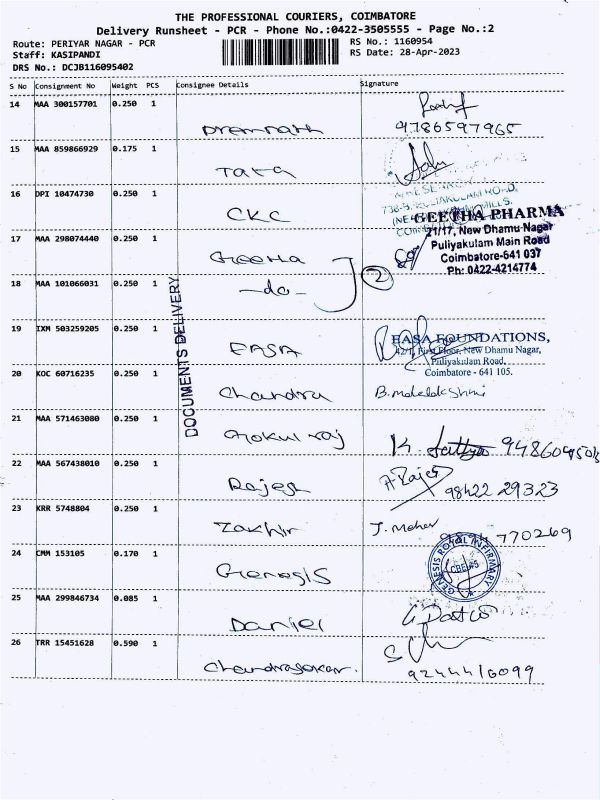 THE PROFESSIONAL COURIERS, COIMBATORE
Delivery Runsheet - PCR - Phone No.:0422-3505555 - Page No.:2
Route: PERIYAR NAGAR - PCR
RS No.: 1160954
Staff: KASIPANDI
RS Date: 28-Apr-2023
DRS No.: DCJB116095402
S No Consignment No Weight PCS Consignee Details Signature
14 MAA 300157701 0.250 1 Premnath
9786597965
15 MAA 859866929 0.175 1 TATA
16 DPI 10474730 0.250 1 CKC
17 MAA 298074440 0.250 1 Geetha
GEETHA PHARMA
21/17, New Dhamu Nagar
Puliyakulam Main Road
Coimbatore-641 037
Ph: 0422-4214774
18 MAA 101066031 0.250 1 -do- 2
DOCUMENTS DELIVERY
19 IXM 503259205 0.250 1 EASA
EASA FOUNDATIONS,
42/1, First Floor, New Dhamu Nagar,
Puliyakulam Road,
Coimbatore - 641 105.
20 KOC 60716235 0.250 1 Chandra B. Mahalakshmi
21 MAA 571463080 0.250 1 Gokul raj K. Sathya
22 MAA 567438010 0.250 1 Rajesh A Rajesh
98422 29323
23 KRR 5748804 0.250 1 Zakhir J. Meher
770269
24 CMM 153105 0.170 1 Genesis
GENESIS ROYAL INFIRMARY
CBE-45
25 MAA 299846734 0.085 1 Daniel
26 TRR 15451628 0.590 1 Chandrasekar.
9244416099